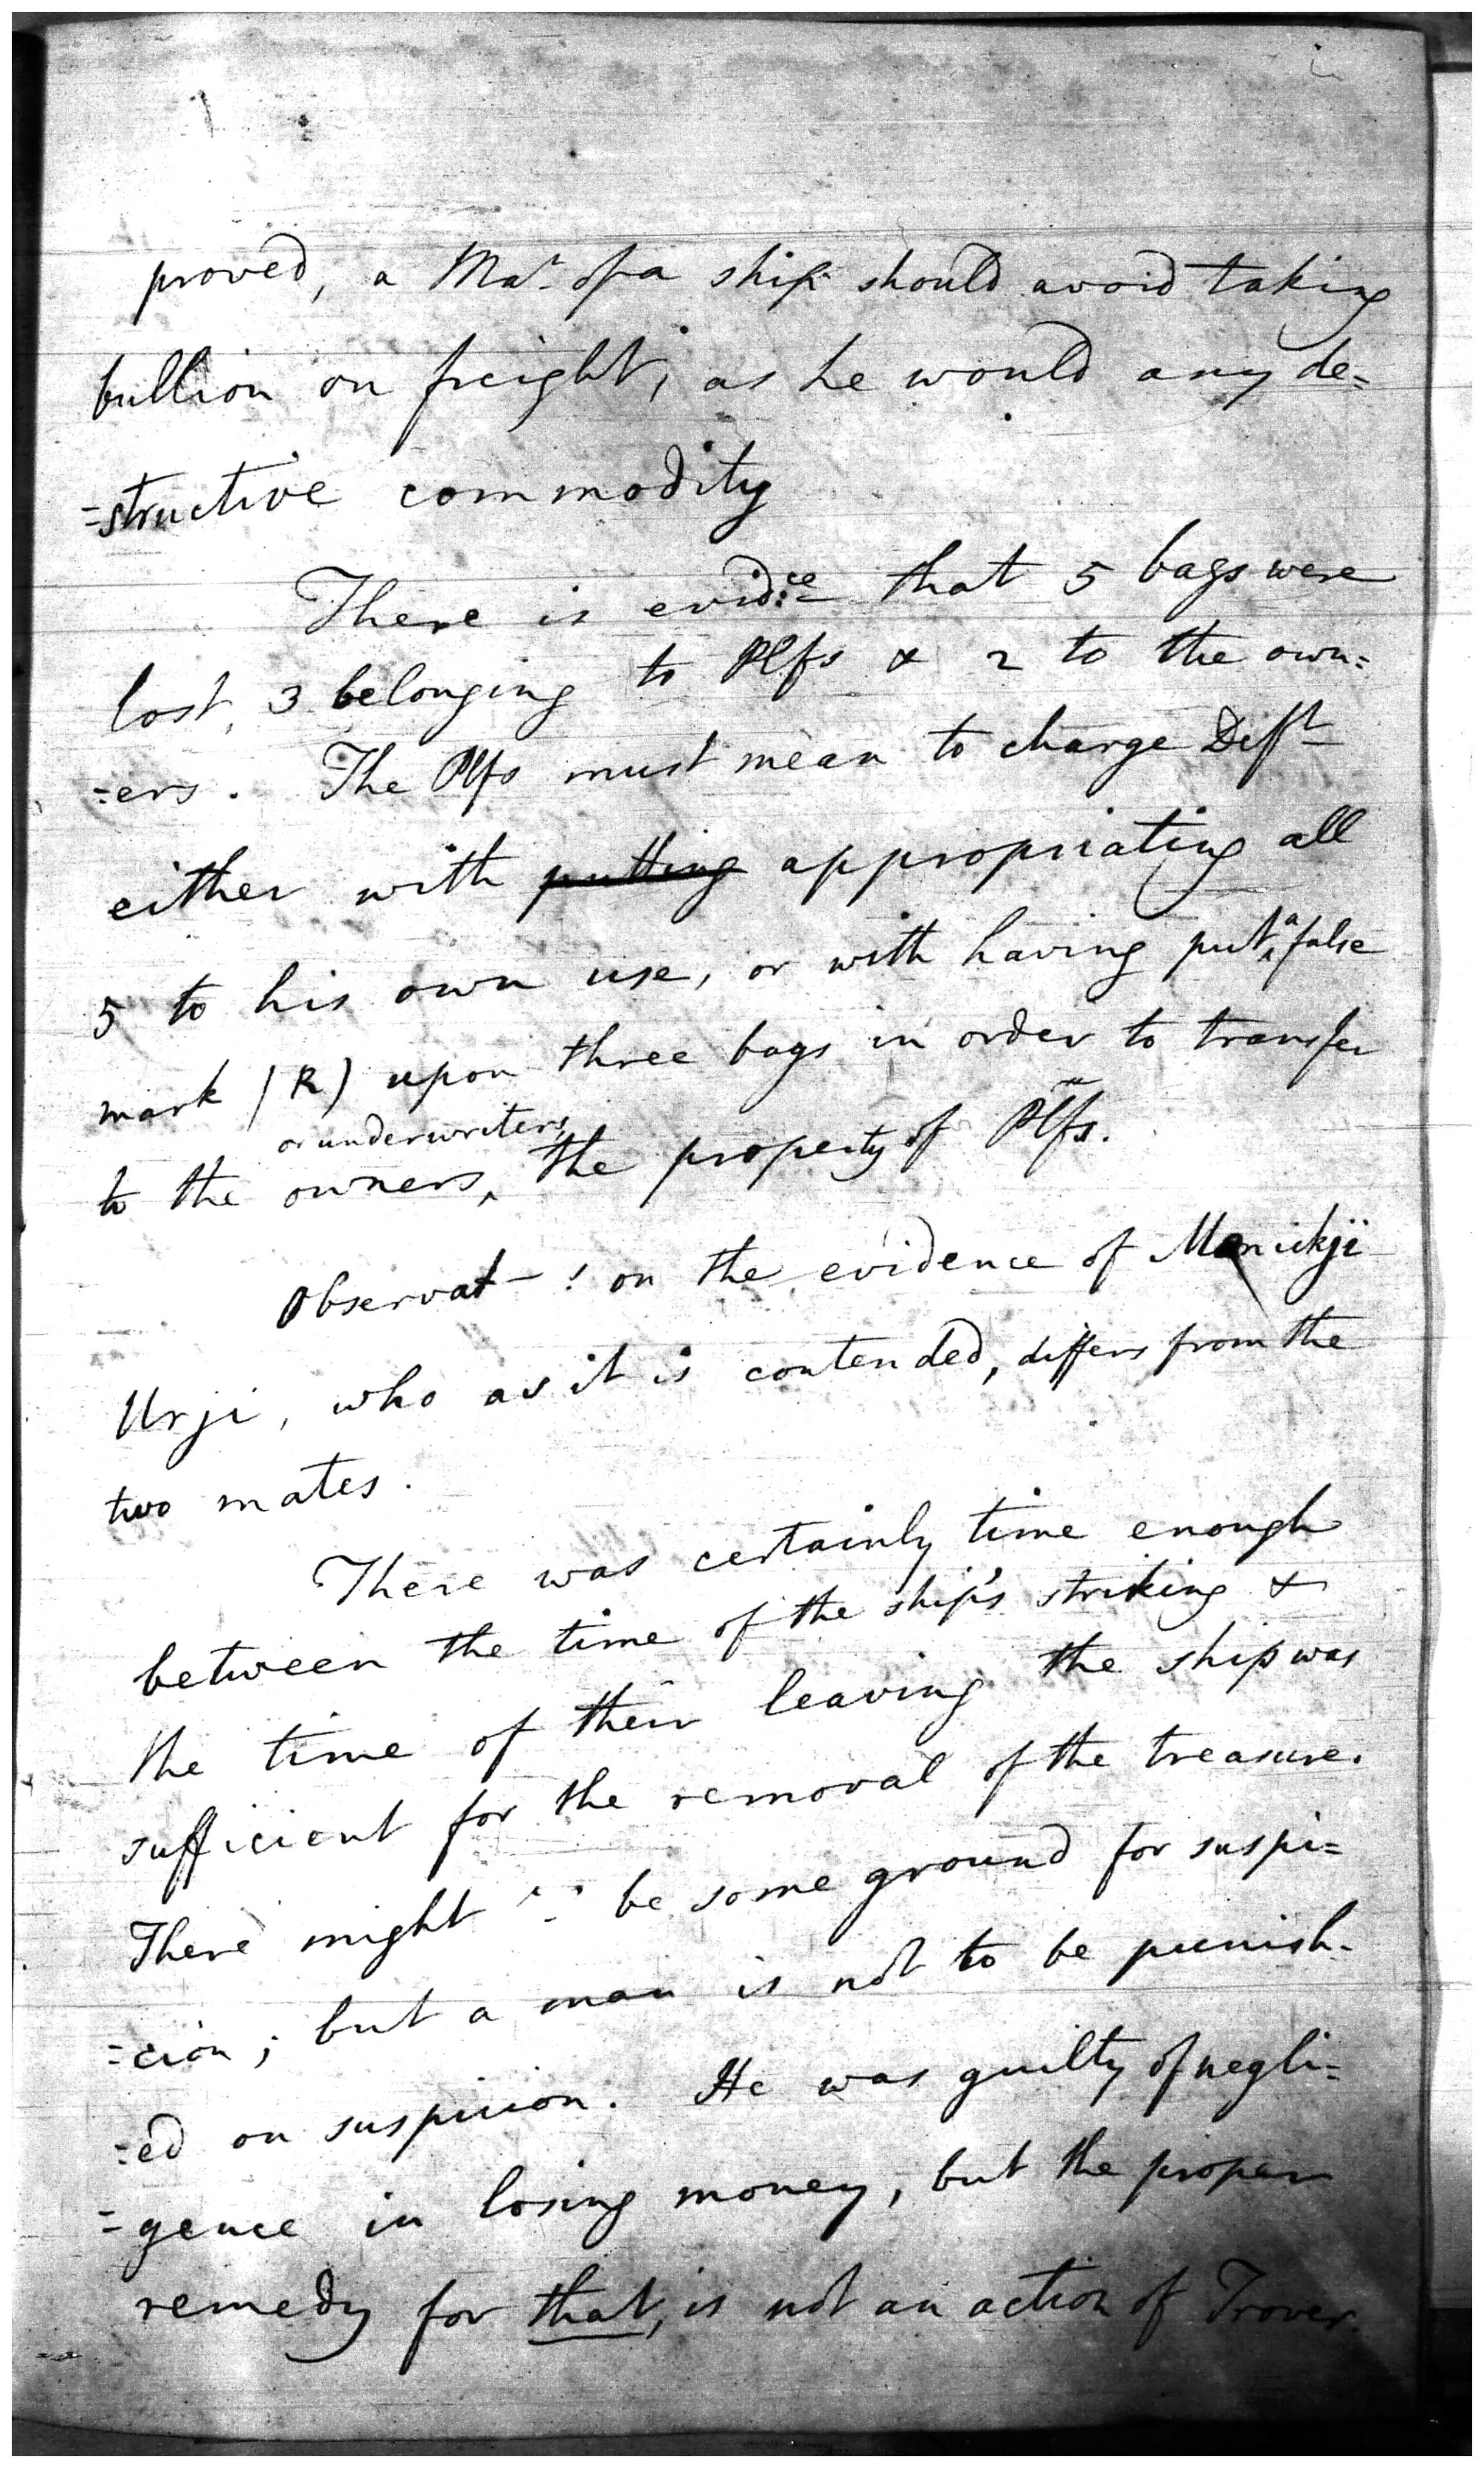 proved, a Mar. of a ship should avoid taking
bullion on freight, as he would any de=
=structive commodity
There is evid:ce that 5 bags were
lost, 3 belonging to Plfs & 2 to the own=
=ers. The Plfs must mean to charge Deft
either with putting appropriating all
5 to his own use, or with having put a false
mark (R) upon three bags in order to transfer
or underwriters,
to the owners, the property of Plfs.
Observat-s on the evidence of Manickji
Urji, who as it is contended, differs from the
two mates.
There was certainly time enough
between the time of the ship's striking &
the time of their leaving the ship was
sufficient for the removal of the treasure.
There might be some ground for suspi=
=cion; but a man is not to be punish-
=ed on suspicion. He was guilty of negli=
=gence in losing money, but the proper
remedy for that, is not an action of Trover.